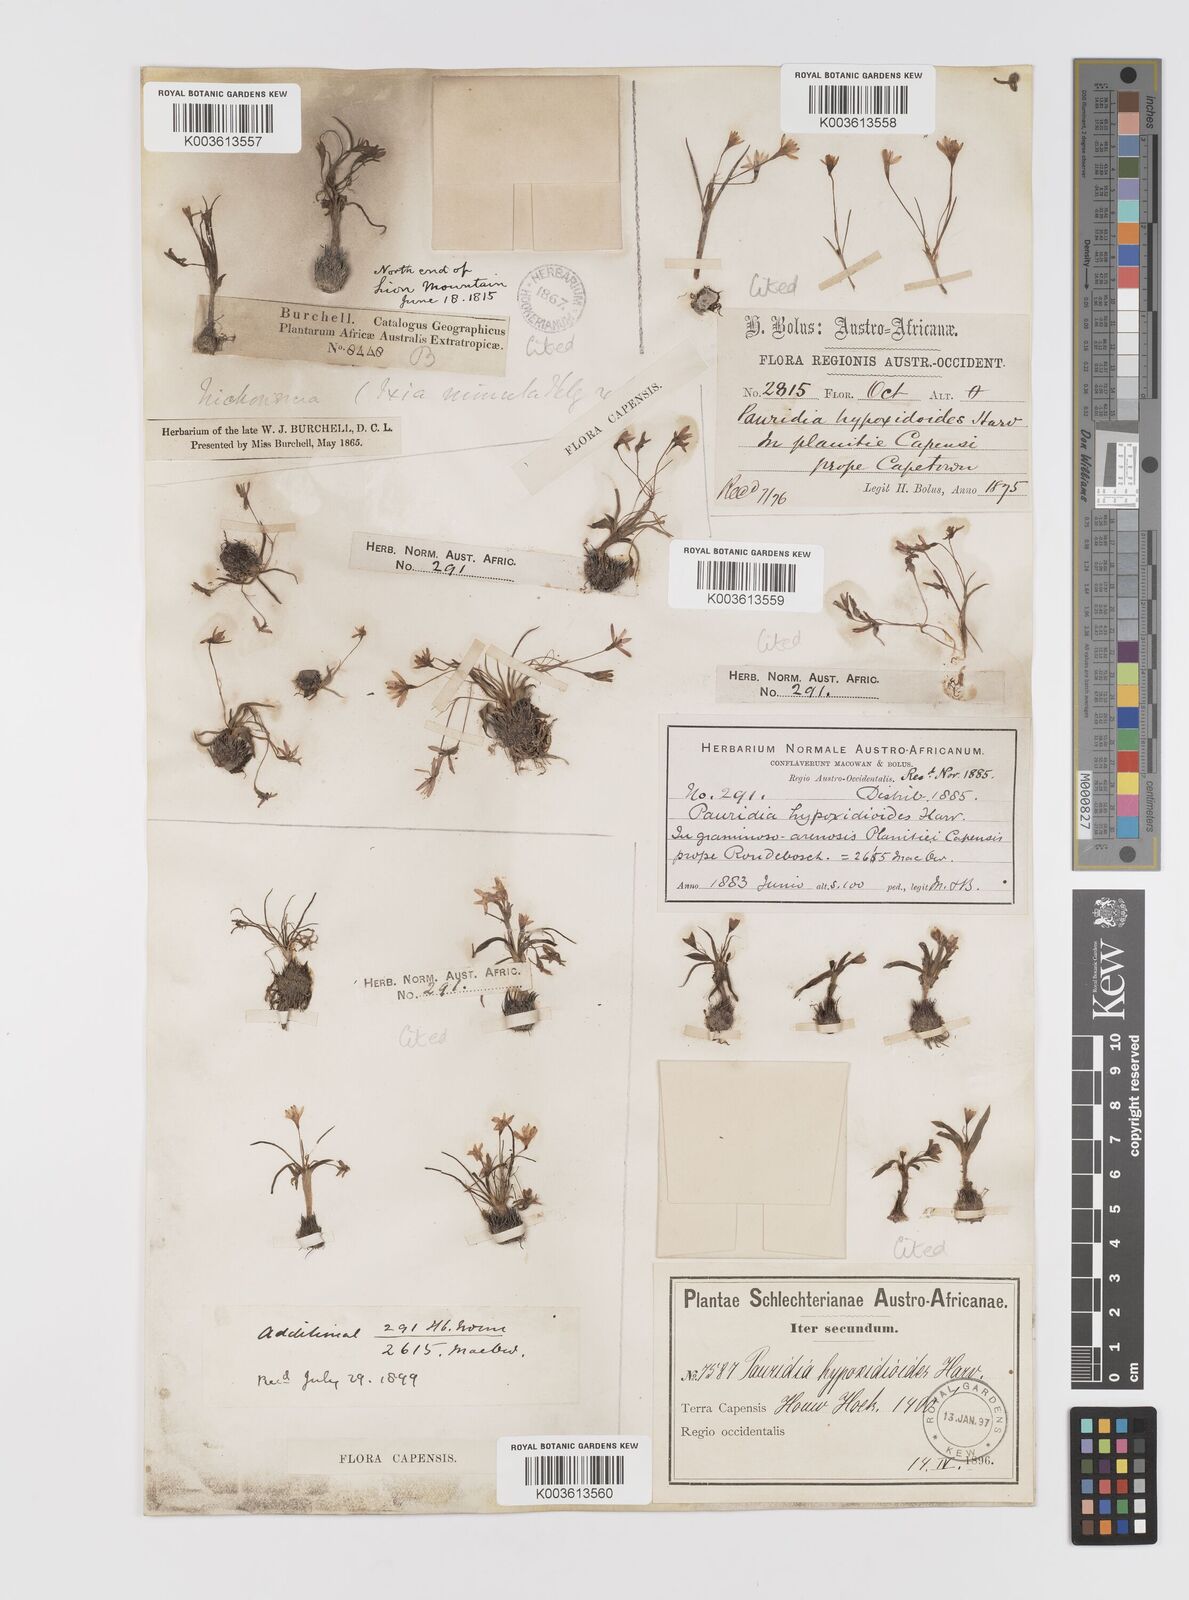 ROYAL BOTANIC GARDENS KEW
K003613557
ROYAL BOTANIC GARDENS KEW
K003613558
North end of
Lion Mountain
June 18. 1815
HERBARIUM HOOKERIANUM
1867
Burchell. Catalogus Geographicus
Plantarum Africæ Australis Extratropicæ.
No. 8440
B
Cited
(Ixia minuta
Herbarium of the late W. J. BURCHELL, D. C. L.
Presented by Miss Burchell, May 1865.
FLORA CAPENSIS.
Cited
H. Bolus: Austro-Africanæ.
FLORA REGIONIS AUSTR.-OCCIDENT.
No. 2815 FLOR. Oct ALT.
Pauridia hypoxidoides Harv
In planitie Capensi
prope Capetown
Recd 7/76 Legit H. Bolus, Anno 1875
HERB. NORM. AUST. AFRIC.
No. 291.
ROYAL BOTANIC GARDENS KEW
K003613559
Cited
HERB. NORM. AUST. AFRIC.
No. 291.
HERBARIUM NORMALE AUSTRO-AFRICANUM.
CONFLAVERUNT MACOWAN & BOLUS.
Regio Austro-Occidentalis. Recd. Nov. 1885.
No. 291. Distrib. 1885.
Pauridia hypoxidioides Harv.
In graminoso-arenosis Planitiei Capensis
prope Rondebosch. = 2615 MacOw.
Anno 1883 Junio alt. s. 100 ped., legit M. & B.
HERB. NORM. AUST. AFRIC.
No. 291.
Cited
Cited
Additional 291 Hb. Norm
2615. MacOw.
Recd July 29. 1899
FLORA CAPENSIS.
ROYAL BOTANIC GARDENS KEW
K003613560
Plantae Schlechterianae Austro-Africanae.
Iter secundum.
No. 7587 Pauridia hypoxidioides Harv.
Terra Capensis Houw Hoek. 1900
Regio occidentalis
14. IV. 1896.
ROYAL GARDENS KEW
13. JAN. 97
inches
Don Williams
Density
M000827
Royal Botanic Gardens
Kew
0 1 2 3 4 5 6 7 8 9 10
cm
copyright reserved